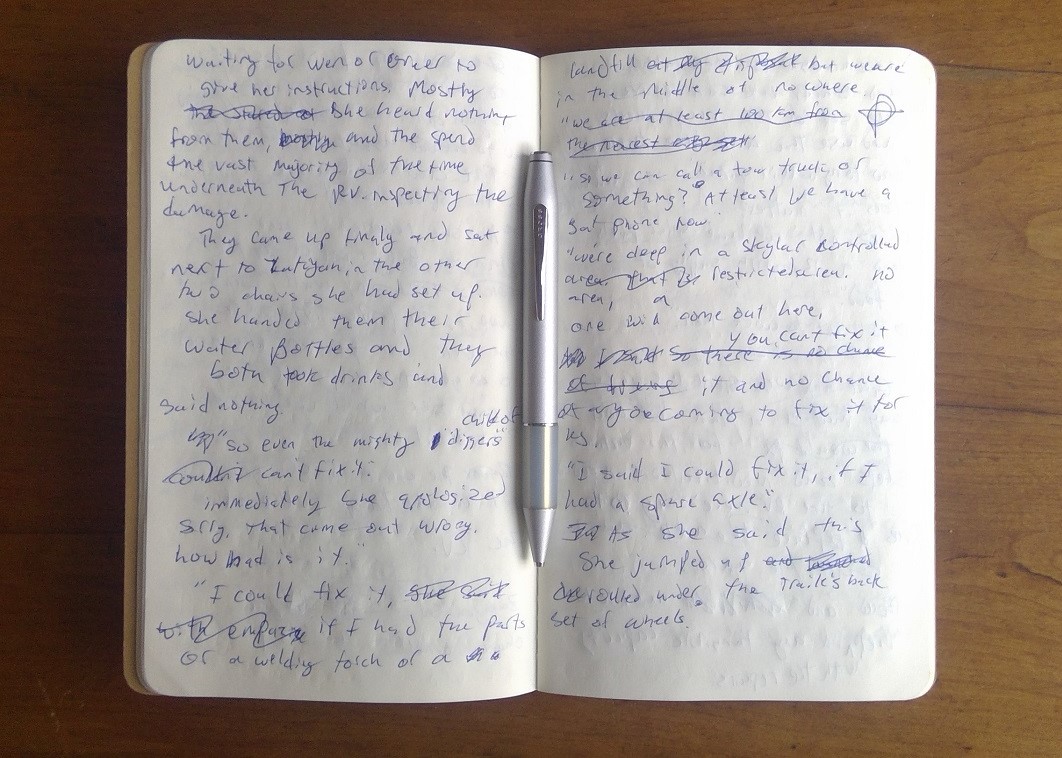 waiting for wen or Greer to
give her instructions. Mostly
she heard nothing
from them, and the spend
the vast majority of the time
underneath the RV inspecting the
damage.
They came up finaly and sat
next to in the other
two chairs she had set up.
she handed them their
water Bottles and they
both took drinks and
said nothing
child of
"so even the mighty "diggers"
couldnt cant fix it.
immediately she apologized
sorry, that came out wrong.
how bad is it."
"I could fix it,
if I had the parts
or a welding torch or a
landfill but we are
in the middle of nowhere.
"we are at least 100 km from
the nearest
"so we can call a tow truck or
something? At least we have a
sat phone now."
CROSS
"we're deep in a skylar controlled
area. that is restricted area. no
area, a
one will come out here,
you cant fix it
so there is no chance
of fixing it and no chance
of anyone coming to fix it for
us.
"I said I could fix it, if I
had a spare axle."
As she said this
she jumped up and
rolled under the Traile's back
set of wheels.